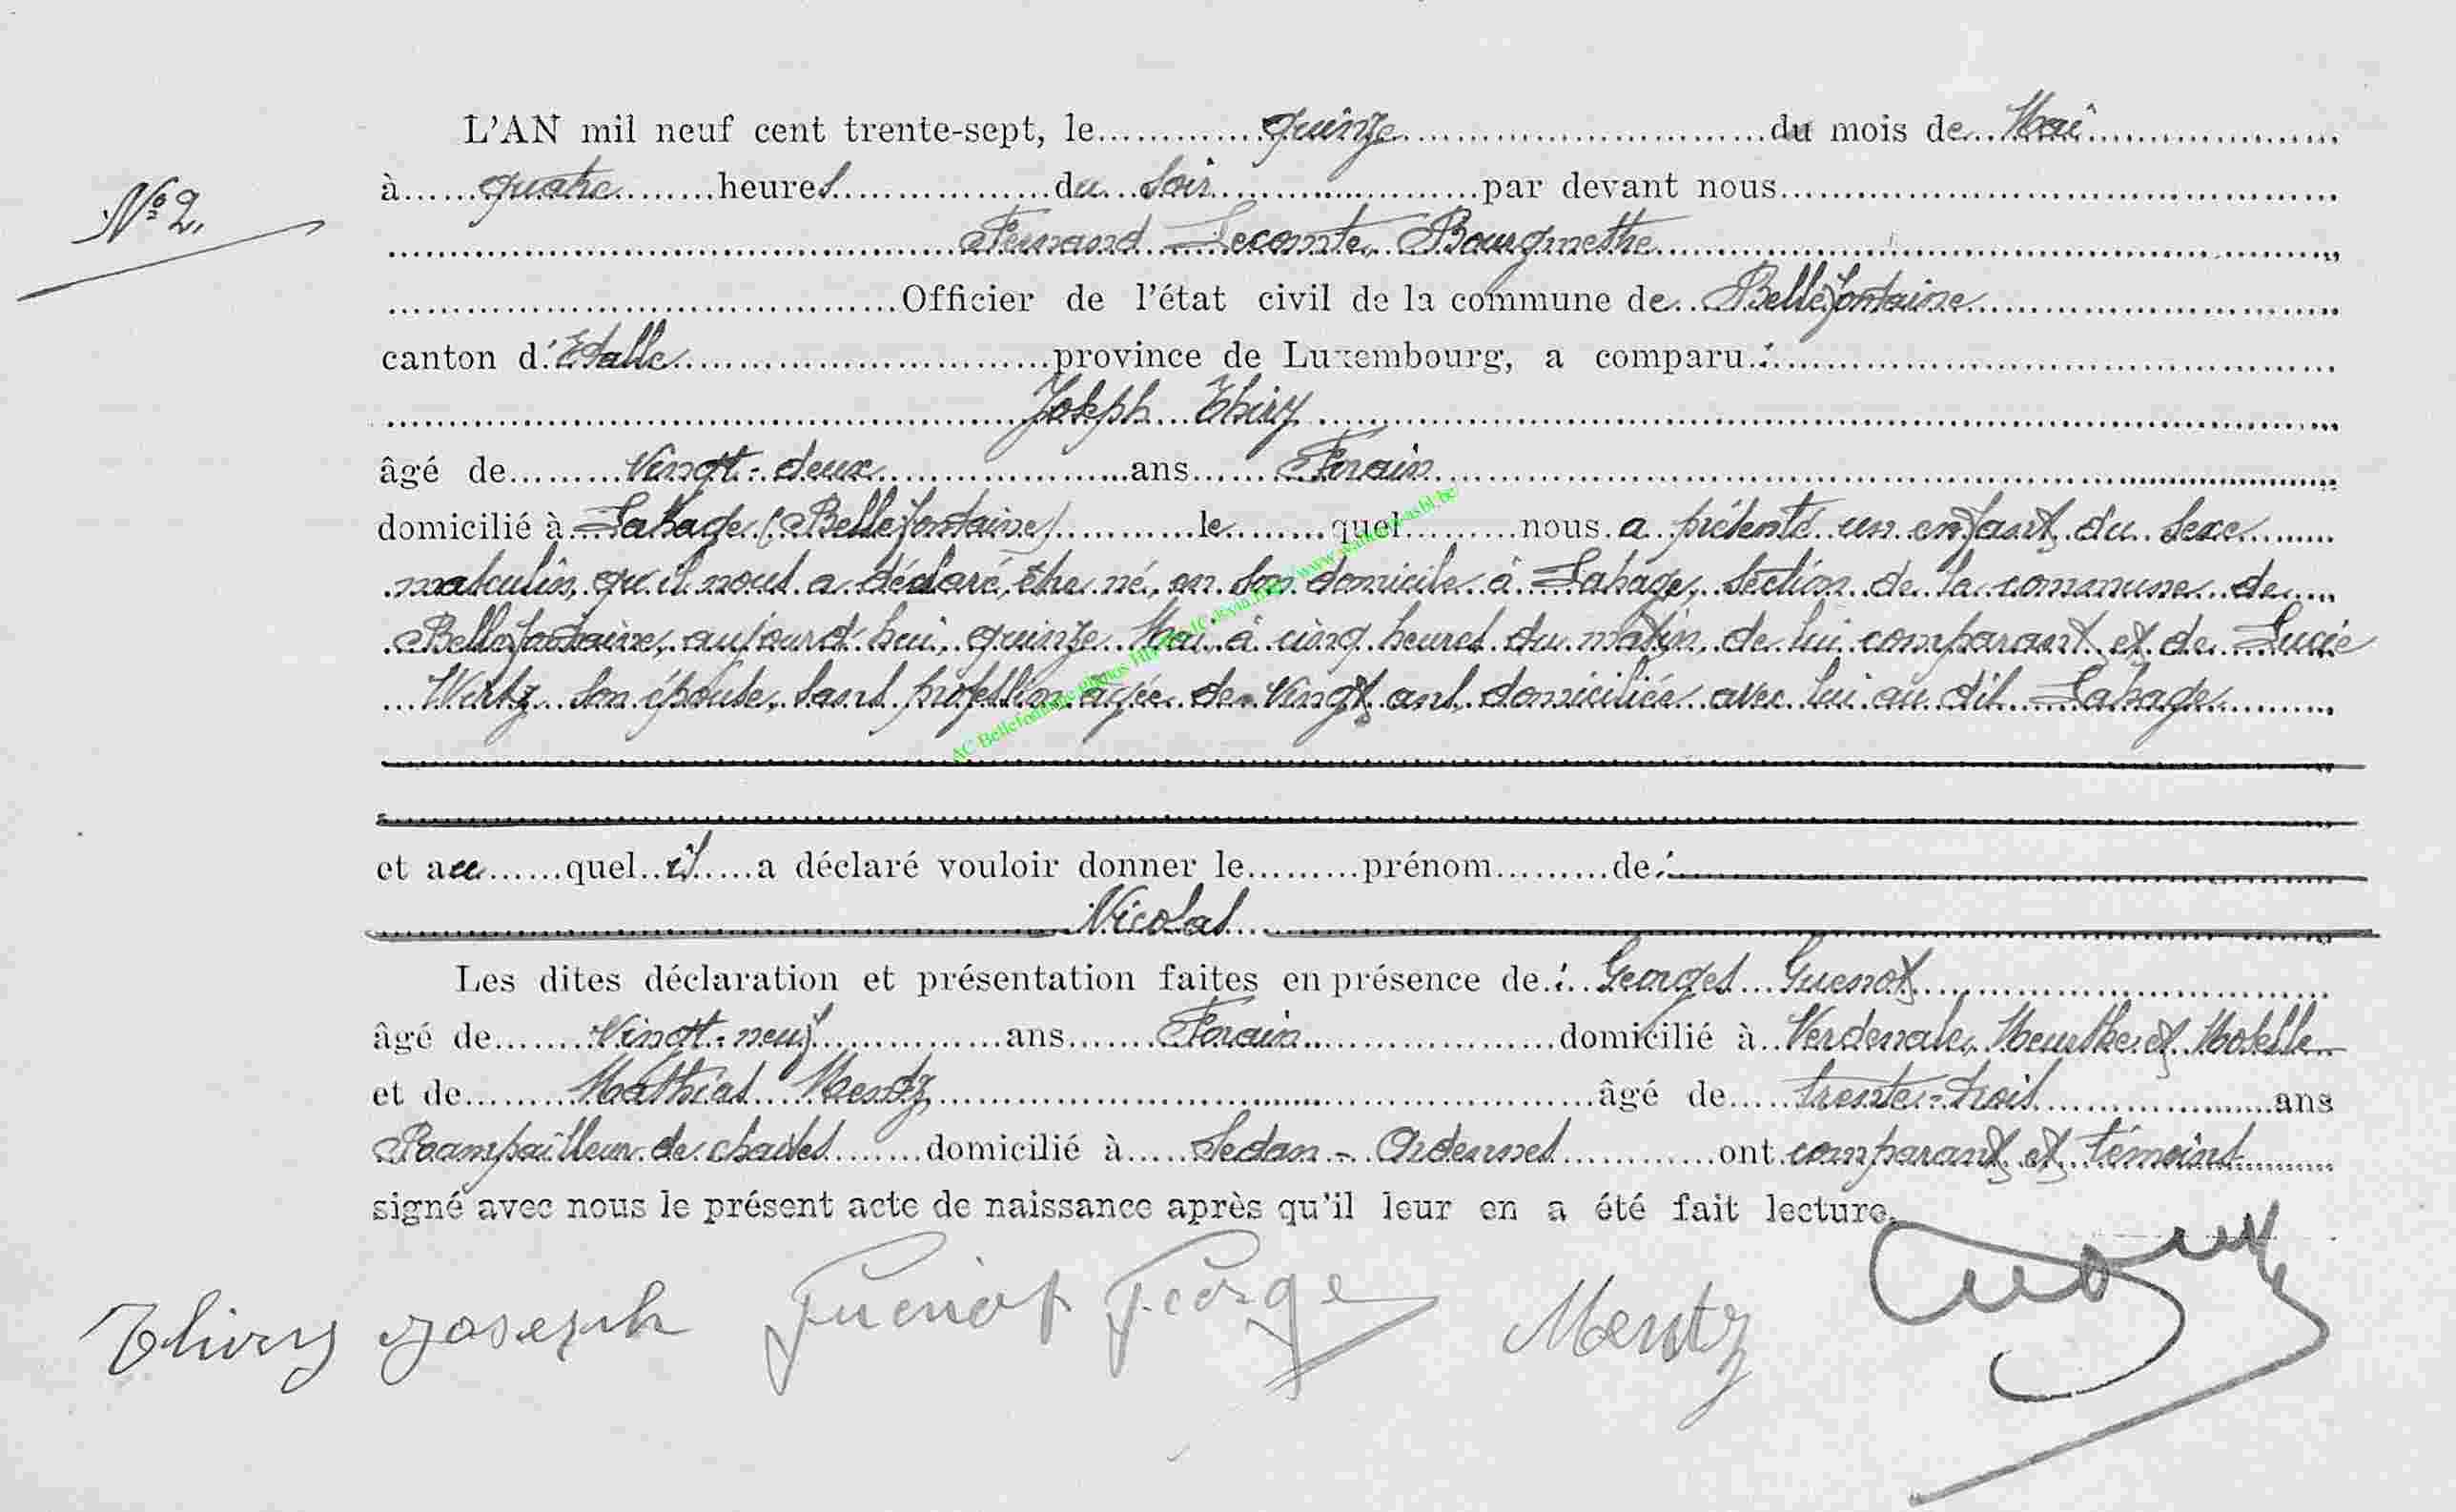 L'AN mil neuf cent trente-sept, le quinze du mois de Mai
N° 2.
à quatre heures du soir par devant nous
Fernand Lecomte, Bourgmestre
Officier de l'état civil de la commune de Bellefontaine
canton d'Etalle province de Luxembourg, a comparu :
Joseph Thiry
âgé de vingt-deux ans Forain
domicilié à Lahage (Bellefontaine) le quel nous a présenté un enfant du sexe
masculin, qu'il nous a déclaré, être né, en son domicile à Lahage, section de la commune de
Bellefontaine, aujourd'hui, quinze Mai à cinq heures du matin, de lui comparant et de Lucie
Wirtz son épouse, sans profession âgée de vingt ans, domiciliée avec lui au dit Lahage
et au quel il a déclaré vouloir donner le prénom de :
Nicolas
Les dites déclaration et présentation faites en présence de : Georges Guenot
âgé de vingt-neuf ans Forain domicilié à Verdenale, Meurthe et Moselle
et de Mathias Mentz âgé de trente-trois ans
Raampailleur de chaises domicilié à Sedan - Ardennes ont comparant et témoins
signé avec nous le présent acte de naissance après qu'il leur en a été fait lecture.
Thiry Joseph Guenot George Mentz